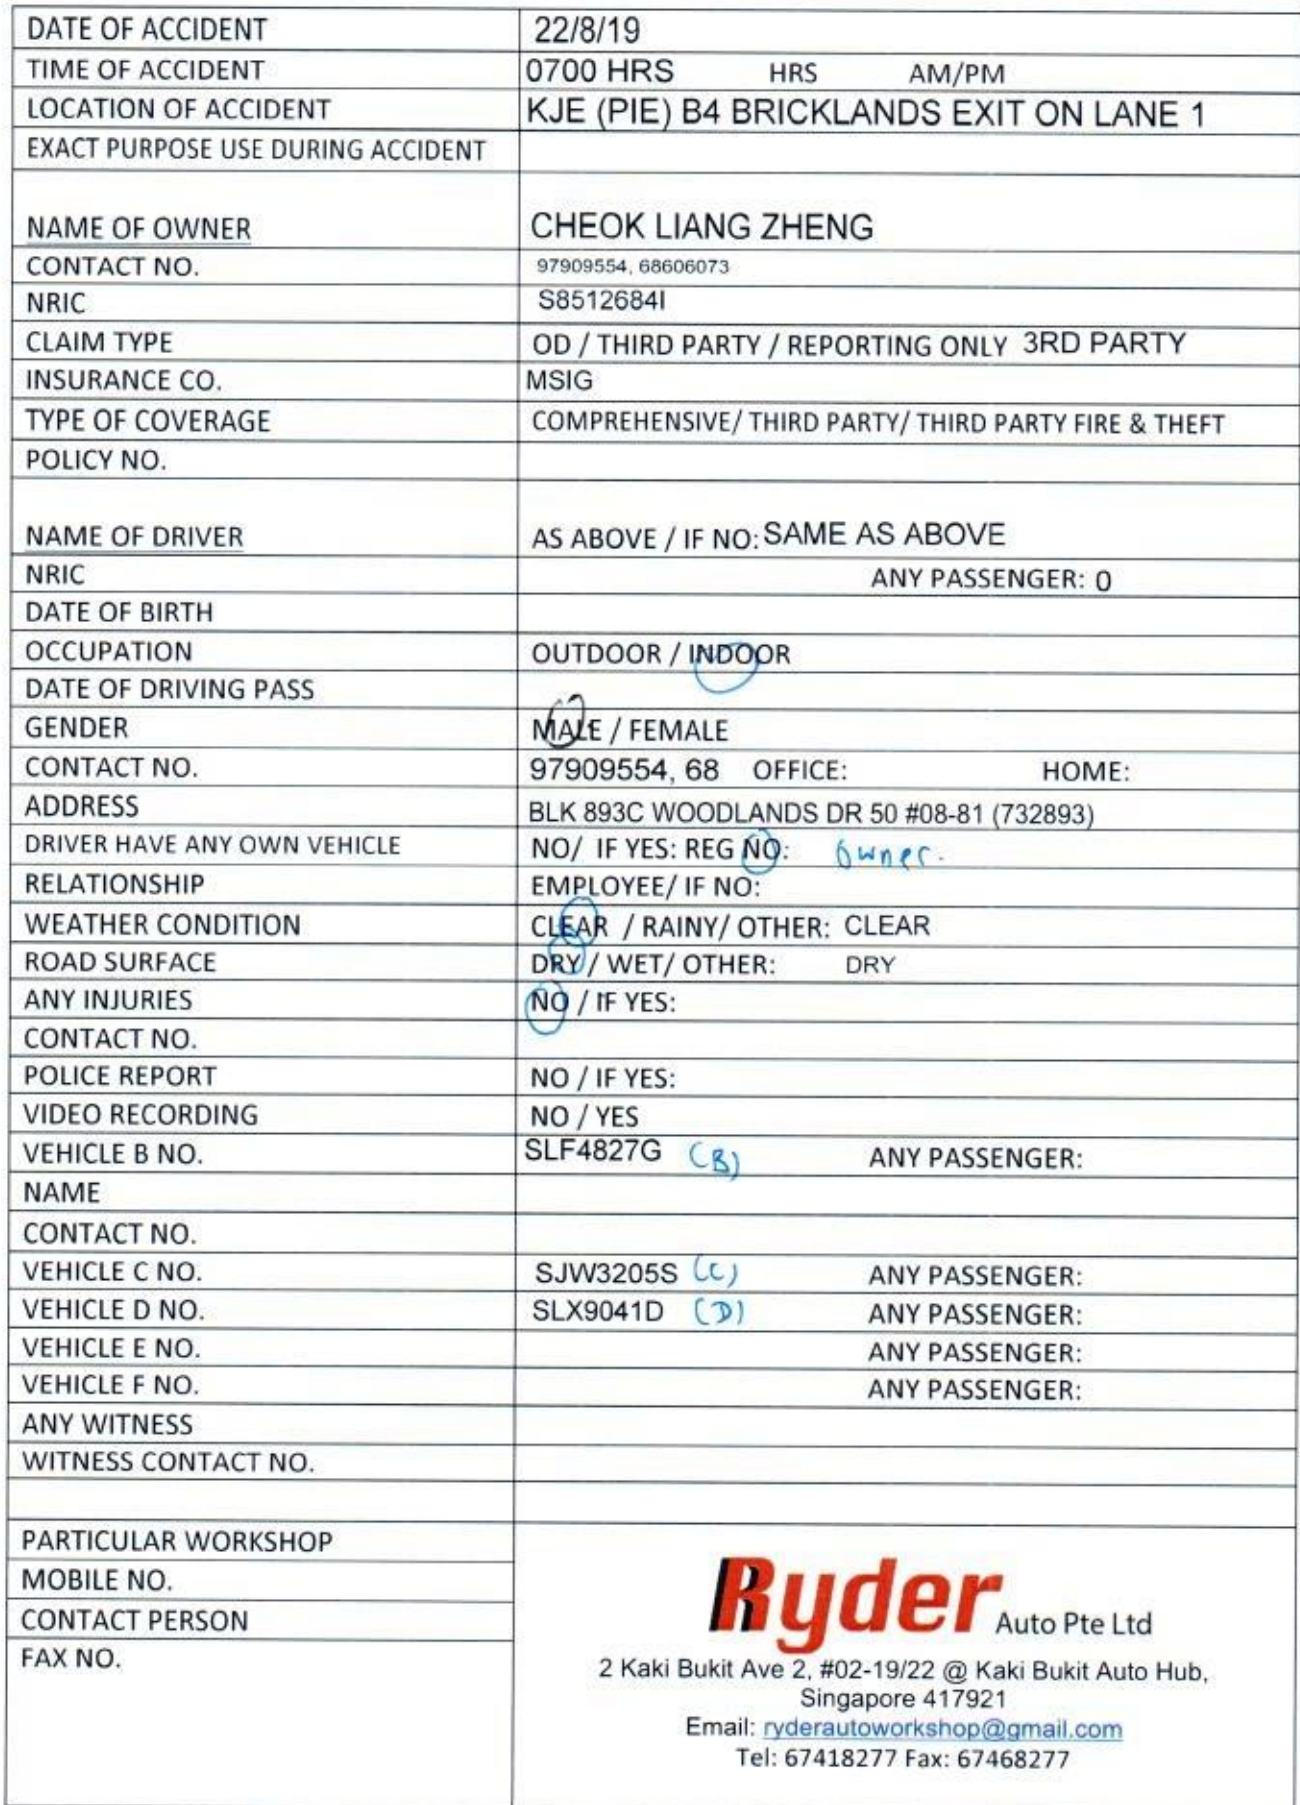 DATE OF ACCIDENT 22/8/19
TIME OF ACCIDENT 0700 HRS HRS AM/PM
LOCATION OF ACCIDENT KJE (PIE) B4 BRICKLANDS EXIT ON LANE 1
EXACT PURPOSE USE DURING ACCIDENT
NAME OF OWNER CHEOK LIANG ZHENG
CONTACT NO. 97909554, 68606073
NRIC S8512684I
CLAIM TYPE OD / THIRD PARTY / REPORTING ONLY 3RD PARTY
INSURANCE CO. MSIG
TYPE OF COVERAGE COMPREHENSIVE/ THIRD PARTY/ THIRD PARTY FIRE & THEFT
POLICY NO.
NAME OF DRIVER AS ABOVE / IF NO: SAME AS ABOVE
NRIC ANY PASSENGER: 0
DATE OF BIRTH
OCCUPATION OUTDOOR / INDOOR
DATE OF DRIVING PASS
GENDER MALE / FEMALE
CONTACT NO. 97909554, 68 OFFICE: HOME:
ADDRESS BLK 893C WOODLANDS DR 50 #08-81 (732893)
DRIVER HAVE ANY OWN VEHICLE NO/ IF YES: REG NO: Owner.
RELATIONSHIP EMPLOYEE/ IF NO:
WEATHER CONDITION CLEAR / RAINY/ OTHER: CLEAR
ROAD SURFACE DRY / WET/ OTHER: DRY
ANY INJURIES NO / IF YES:
CONTACT NO.
POLICE REPORT NO / IF YES:
VIDEO RECORDING NO / YES
VEHICLE B NO. SLF4827G (B) ANY PASSENGER:
NAME
CONTACT NO.
VEHICLE C NO. SJW3205S (C) ANY PASSENGER:
VEHICLE D NO. SLX9041D (D) ANY PASSENGER:
VEHICLE E NO. ANY PASSENGER:
VEHICLE F NO. ANY PASSENGER:
ANY WITNESS
WITNESS CONTACT NO.
PARTICULAR WORKSHOP
MOBILE NO.
CONTACT PERSON
FAX NO.
Ryder Auto Pte Ltd
2 Kaki Bukit Ave 2, #02-19/22 @ Kaki Bukit Auto Hub,
Singapore 417921
Email: ryderautoworkshop@gmail.com
Tel: 67418277 Fax: 67468277